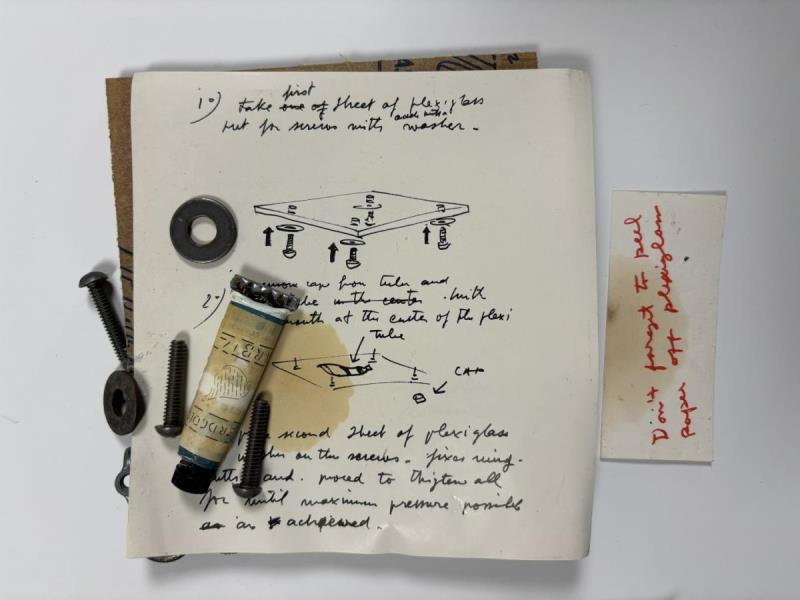 1°) take first sheet of plexiglass
put for screws with and with a washer.
2°)
cap from tube and
tube with
mouth at the center of the plexi
tube
CAP
second sheet of plexiglass
on the screws. fixes wing.
nutts and. proced to thigten all
for until maximum pressure possible
as achieved.
Don't forget to peel
paper off plexiglass